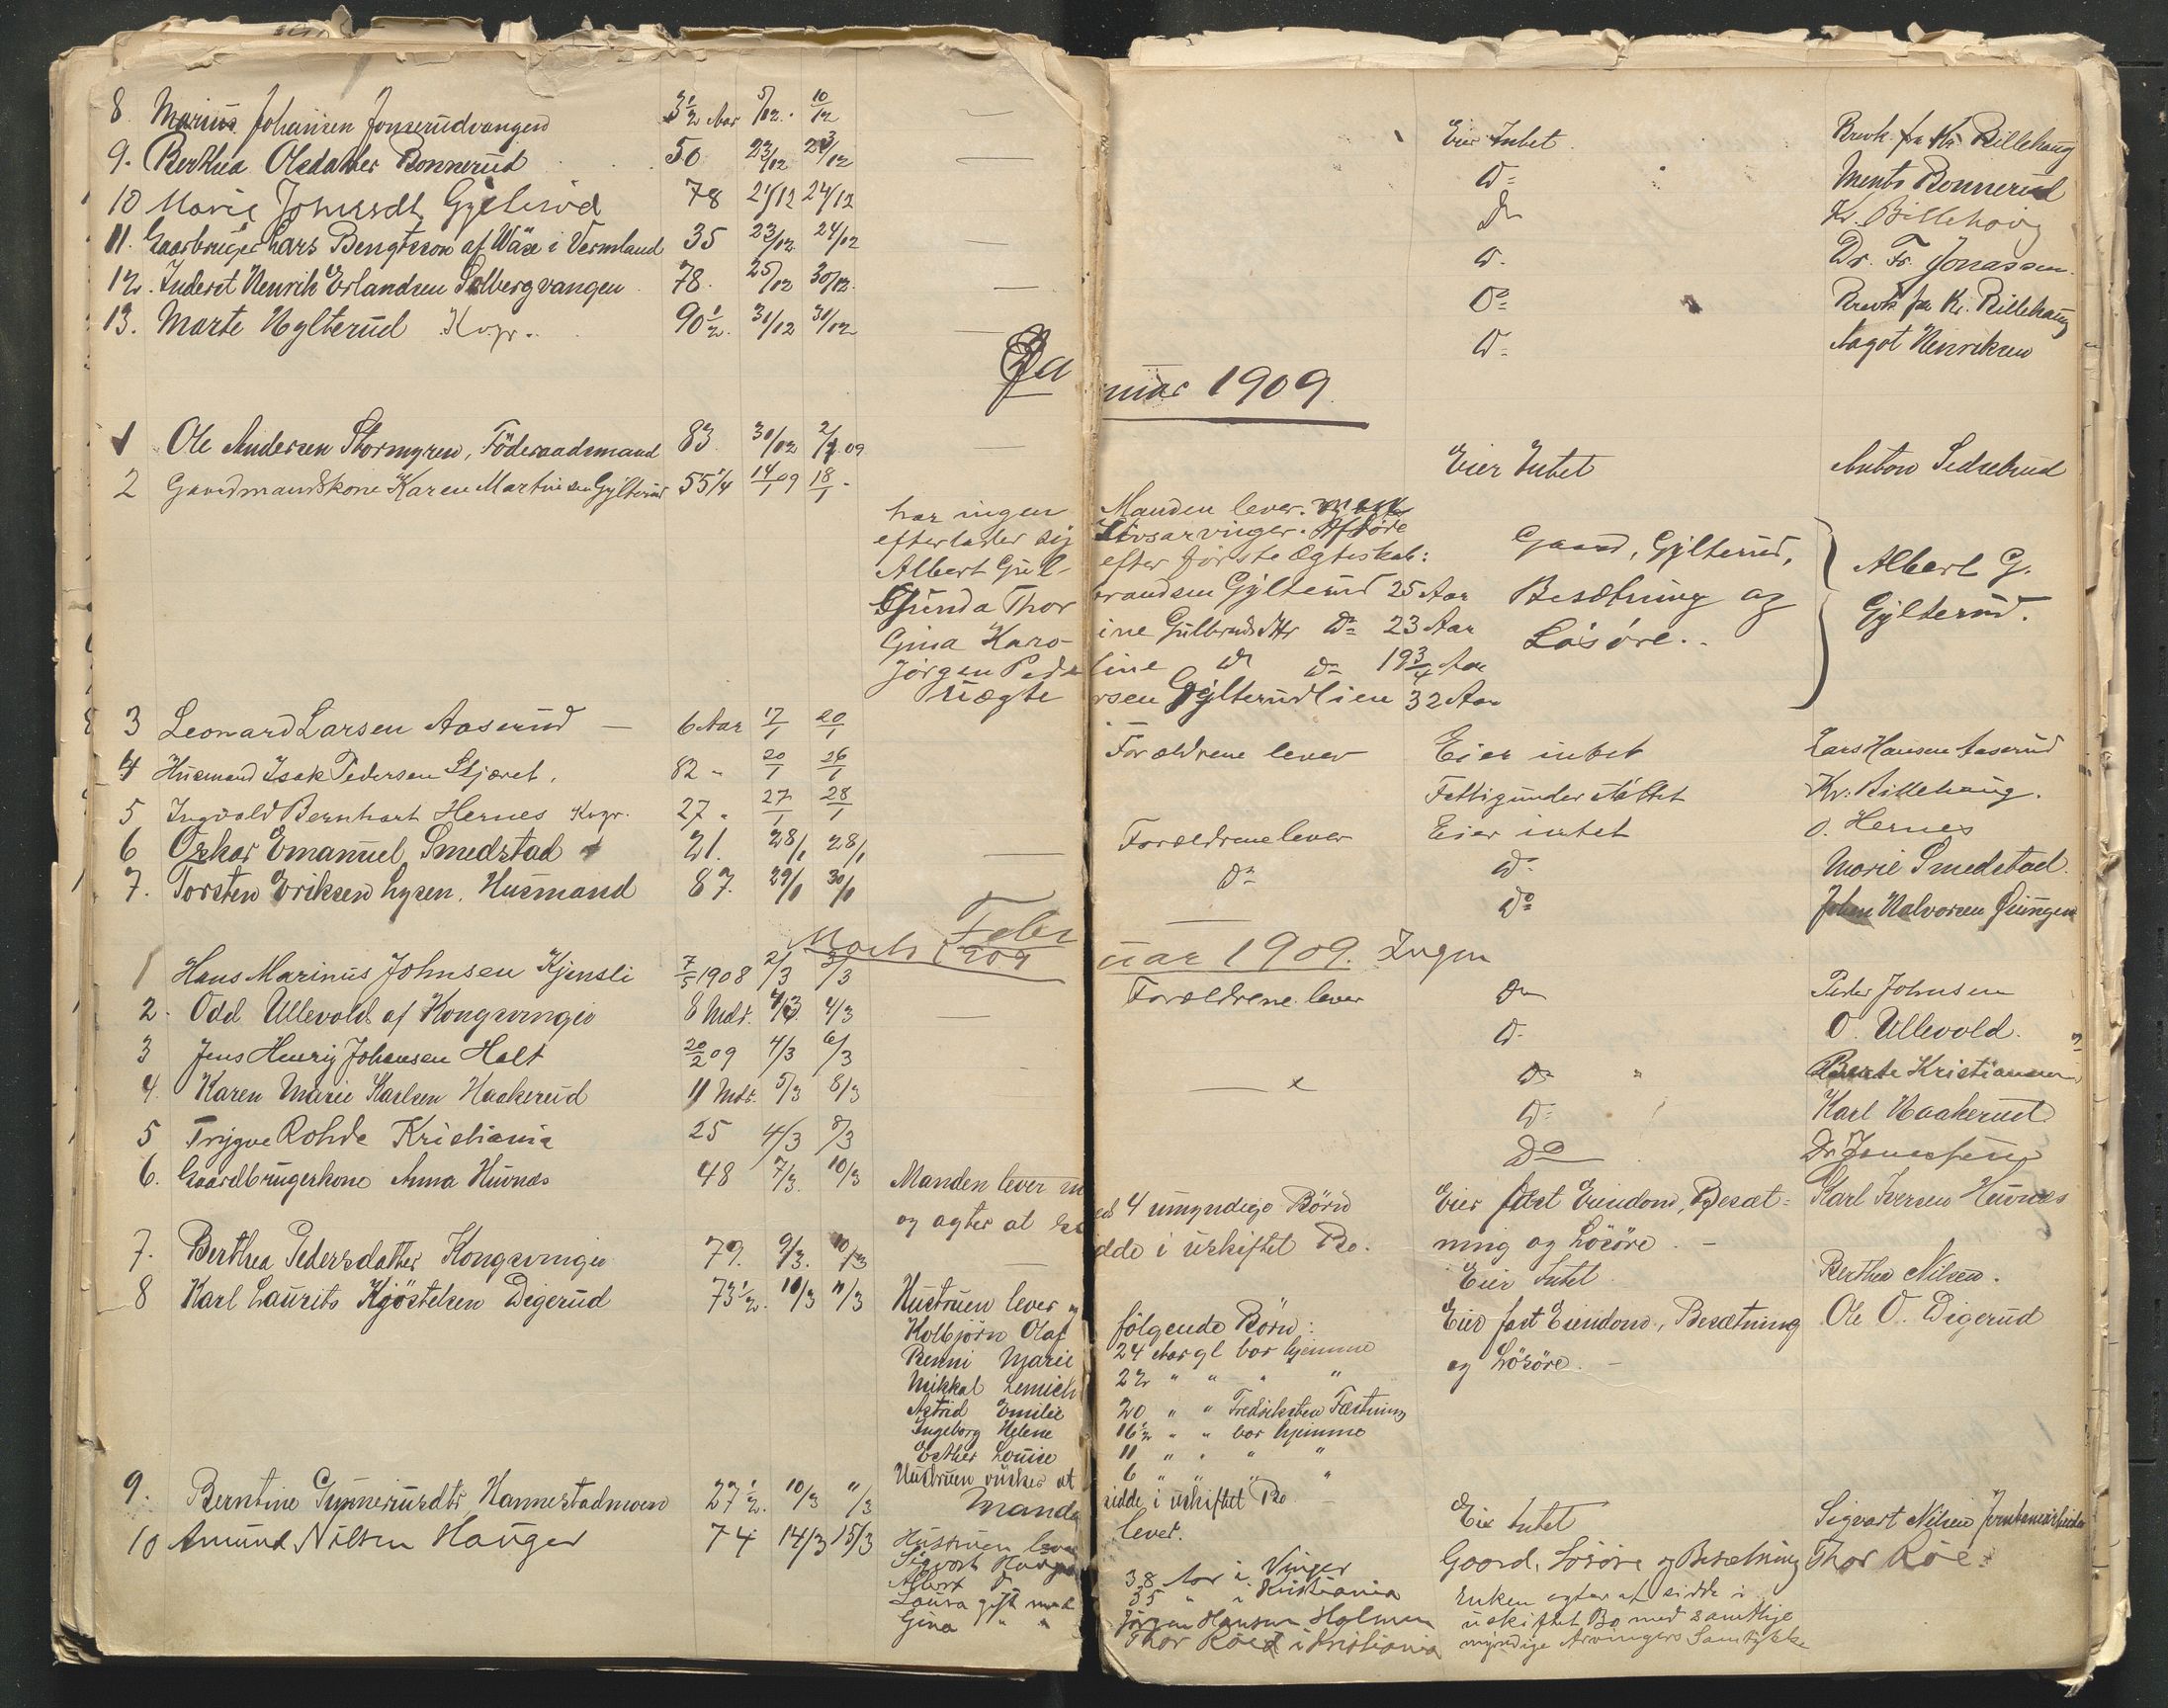 8. Marius Johansen Jonserudvangen 3½ Aar 5/12. 10/12 — Eier Intet. Brevk. fra Kr. Billehaug
9. Berthea Olsdatter Bonnerud 50 23/12 23/12 — Do Ments Bonnerud
10 Marie Johnsdt. Gylterud 78 21/12 24/12 Do Kr. Billehoug
11. Gaardbruger Lars Bengtsson af Wäse i Vermland 35 23/12 24/12 — Do. Dr. Fr. Jonassen.
12. Inderst Henrik Erlandsen Solbergvangen 78. 25/12 30/12. — Do Brevk fra Kr. Billehaug
13. Marte Hylterud Kvgr. 90½. 31/12 31/12 — Do Aagot Henriksen
Januar 1909.
1 Ole Andersen Stormyren, Föderaadsmand 83 30/12 2/1 09 — Eier Intet Anton Sedsebrud
2 Gaardmandskone Karen Martinsen Gylterud 55 1/4 14/1 09 18/1 -
Manden lever.
har ingen Livsarvinger. Afdöde
efterlader sig efter förste Ægteskab: Gaard, Gylterud,
Albert Gulbrandsen Gylterud 25 Aar Besætning og Albert G.
Gunda Thorine Gulbrandsdtr Do 23 Aar Lösöre. Gylterud.
Gina Karoline Do Do 19¾ Aar
Jörgen Pedersen Gylterudlien 32 Aar
Uægte
3 Leonard Larsen Aaserud — 6 Aar 17/1 20/1 Forældrene lever Eier intet Lars Hansen Aaserud
4 Husmand Isak Pedersen Skjæret. 82 - 20/1 26/1 Fattigunderstöttet Kr. Billehaug.
5 Ingvald Bernhart Hernes Kvgr. 27 - 27/1 28/1 Forældrene lever Eier intet O. Hernes
6 Oskar Emanuel Smedstad 21. 28/1 28/1 — Do Do Marie Smedstad.
7. Torsten Eriksen Lysen. Husmand 87. 29/1 30/1 — Do Johan Halvorsen Giungen
Februar 1909. Ingen
Marts 1909
1 Hans Marinus Johnsen Kjensli 7/5 1908 2/3 3/3 Forældrene lever Do Peder Johnsen
2. Odd Ullevold af Kongsvinger 8 Mdr. 4/3 4/3 — Do O. Ullevold.
3 Jens Henrij Johansen Holt 20/2 09 4/3 6/3 — Do " Berte Kristiansen
4. Karen Marie Karlsen Haakerud 11 Mdr. 5/3 8/3 Do " Karl Haakerud
5 Trygve Rohde Kristiania 25 4/3 8/3 Do Dr Jonassen
6. Gaardbrugerkone Anna Huvnæs 48 7/3. 10/3 Manden lever med 4 umyndige Börn Eier fast Eiendom, Besæt= Karl Iversen Huvnæs
og agter at sidde i uskiftet Bo. ning og Lösöre. —
7. Berthea Pedersdatter Kongsvinger 79. 9/3. 10/3 — Eier Intet Berthea Nilsen.
8 Karl Laurits Kjöstelsen Digerud 73½. 10/3 11/3 Hustruen lever og følgende Börn: Eier fast Eiendom, Besætning Ole O. Digerud
Kolbjörn Olaf 24 Aar gl bor hjemme og Lösöre. —
Benni Marie 22 " " " "
Mikkal Lemich 20 " " Fredriksten Fæstning
Astrid Emilie 16½ " " bor hjemme
Ingeborg Helene 11 " " " "
Esther Louise 6 " " " "
Hustruen önsker at sidde i uskiftet Bo
9. Berntine Gunneriusdtr. Hannestadmoen 27½. 10/3 11/3 Manden lever. Eier Intet Sigvart Nilsen Jernbanearbeider
10 Amund Nilsen Hauger 74 14/3 15/3 Hustruen lever Gaard, Lösöre og Besætning Thor Röe.
Sigvart Hauger 38 Aar i Vinger Enken agter at sidde i
Albert Do 35 " i Kristiania uskiftet Bo med samtlige
Laura gift med Jörgen Hansen Holmen myndige Arvingers Samtykke
Gina " " Thor Röe i Kristiania